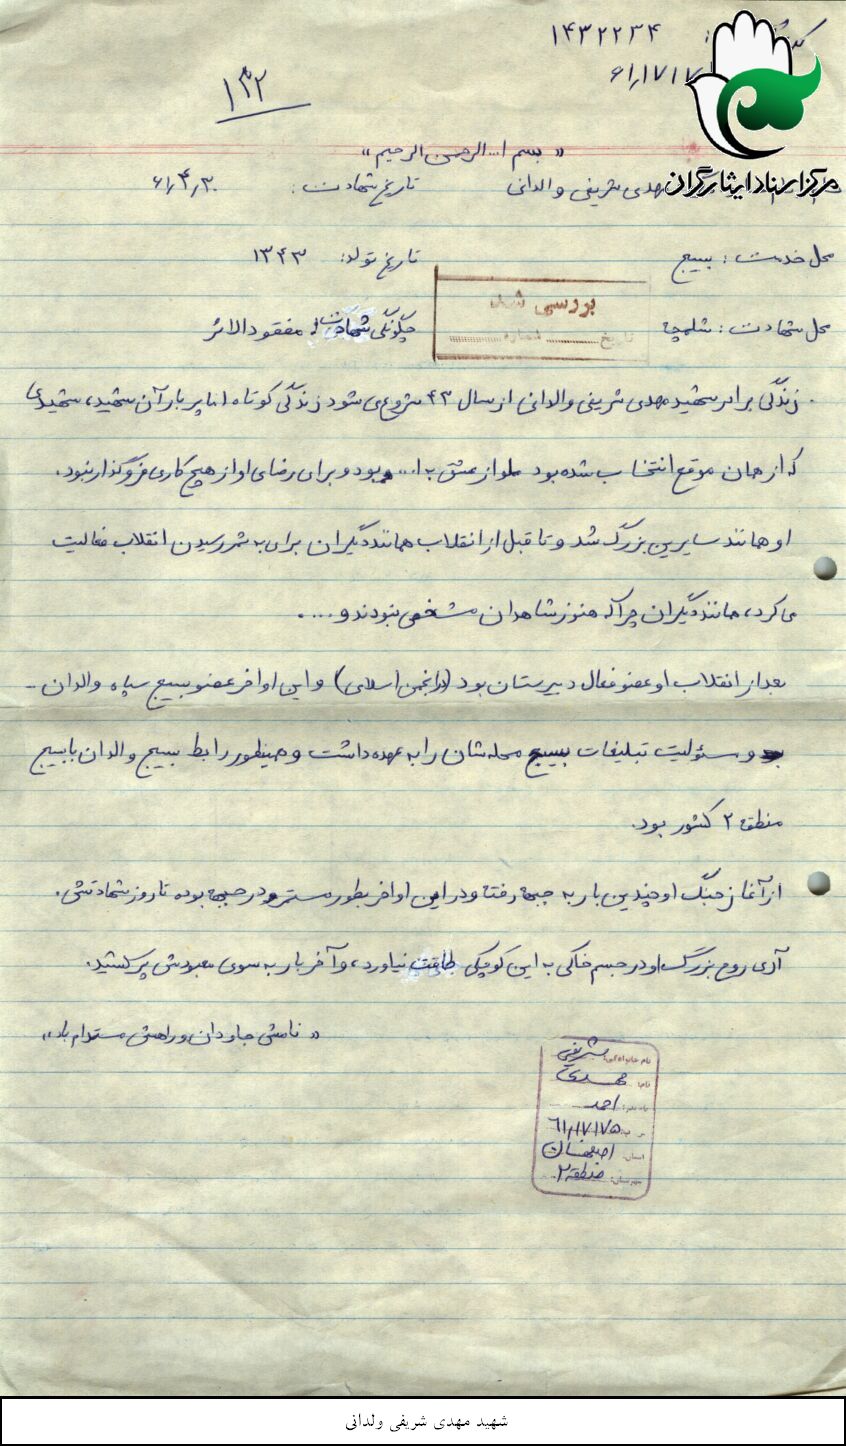 ۱۴۳۲۲۳۴
۱۳۲
مرکز اسناد ایثارگران
« بسم ا... الرحمن الرحیم »
مهدی شریفی والدانی تاریخ شهادت: ۶۱٫۴٫۳۰
محل خدمت: بسیج تاریخ تولد: ۱۳۴۳
بررسی شد
تاریخ شماره
محل شهادت: شلمچه چگونگی شهادت: مفقودالاثر
زندگی برادر شهید مهدی شریفی والدانی از سال ۴۳ شروع می شود زندگی کوتاه اما پر بار آن شهید، شهیدی
که از همان موقع انتخاب شده بود مملو از عشق به ا... بود و برای رضای او از هیچ کاری فروگذار نبود.
او همانند سایرین بزرگ شد و تا قبل از انقلاب همانند دیگران برای به ثمر رسیدن انقلاب فعالیت
می کرد، مانند دیگران چرا که هنوز شاهدان مشخص نبودند و ....
بعد از انقلاب او عضو فعال دبیرستان بود (در انجمن اسلامی) و این اواخر عضو بسیج سپاه والدان
و مسئولیت تبلیغات بسیج محله شان را به عهده داشت و همینطور رابط بسیج والدان با بسیج
منطقه ۲ کشور بود.
از آغاز جنگ او چندین بار به جبهه رفته و در این اواخر بطور مستمر در جبهه بوده تا روز شهادتش.
آری روح بزرگ او در جسم خاکی به این کوچکی طاقت نیاورد، و آخر بار به سوی معبودش پر کشید.
« نامش جاودان و راهش مستدام باد »
نام خانوادگی: شریفی
نام: مهدی
نام پدر: احمد
استان: اصفهان
شهرستان: منطقه ۲
شهید مهدی شریفی ولدانی